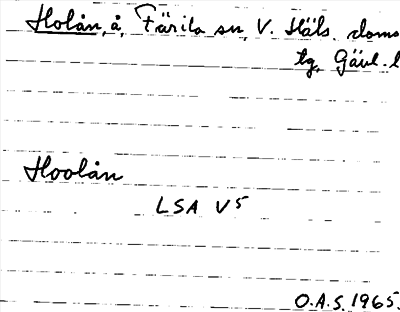 Holån, å, Färila sn, V. Häls. doms
tg, Gävl. l
Hoolån
LSA V5
O.A.S. 1965.